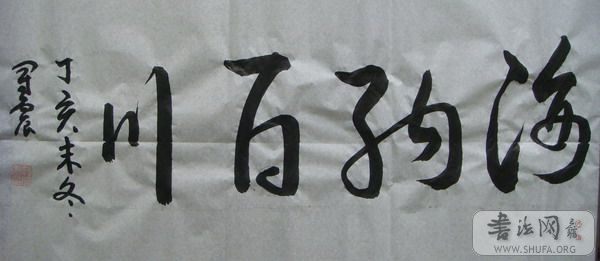 海納百川
丁亥末冬
書法网
WWW.SHUFA.ORG